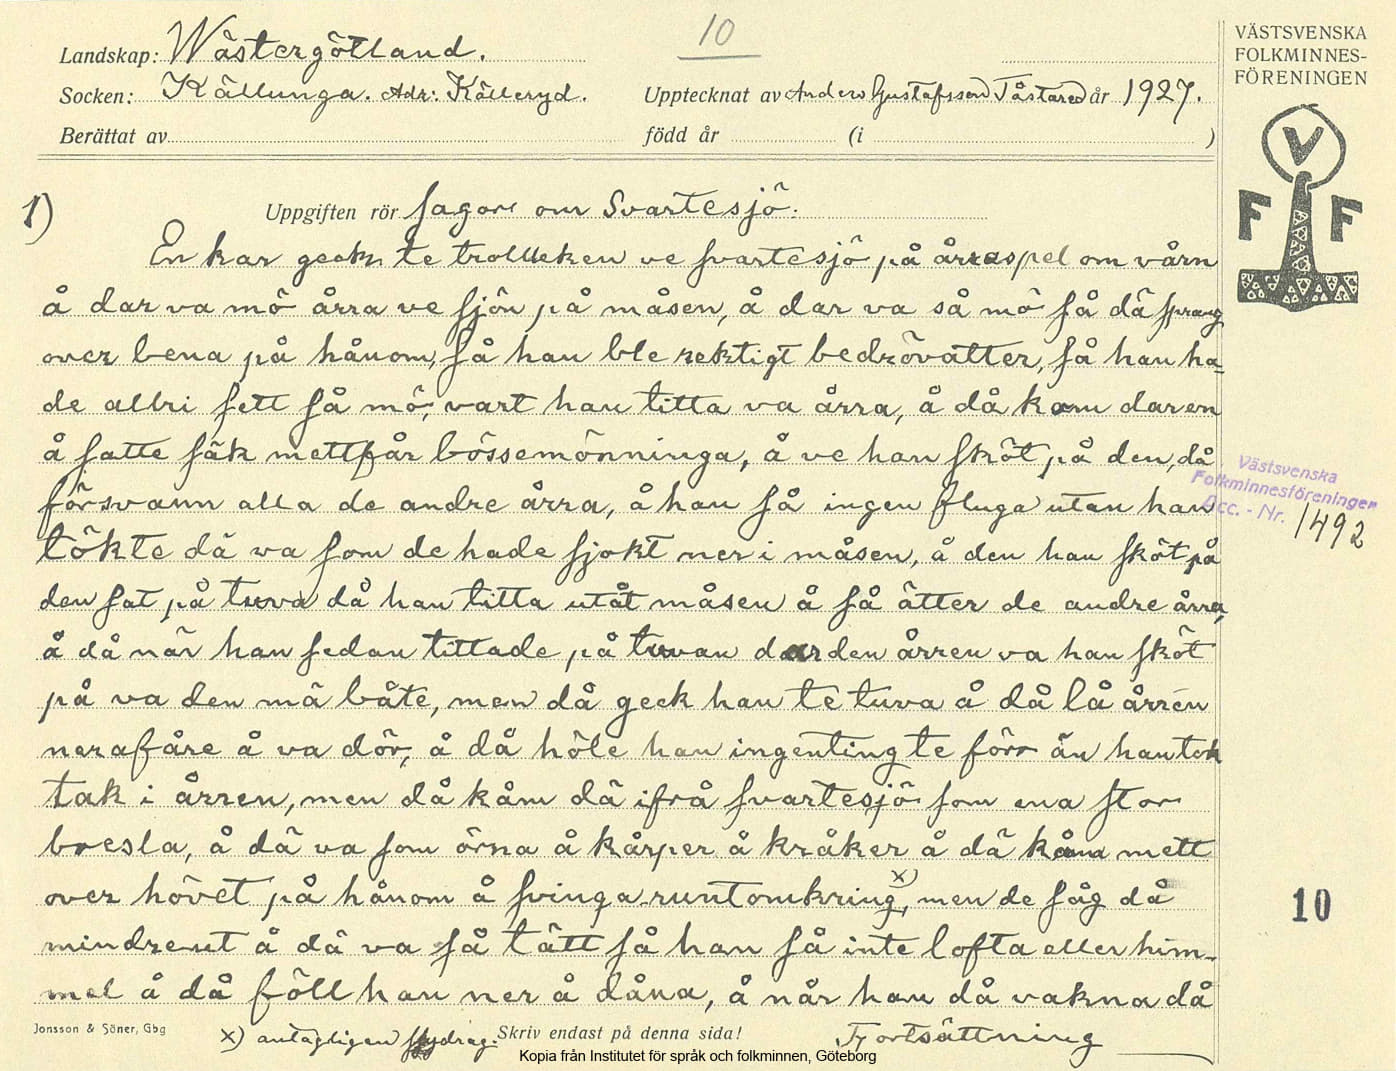 10
Landskap: Wästergötland.
Socken: Källunga. Adr: Kölleryd.
Upptecknat av Anders Gustafsson Tåstared år 1927.
Berättat av
född år (i )
VÄSTSVENSKA
FOLKMINNES-
FÖRENINGEN
V
F F
1)
Uppgiften rör Sagor om Svartesjö.
En kar geck te trollleken ve svartesjö på årraspel om vårn
å dar va mö årra ve sjön på måsen, å dar va så mö så dä sprang
over bena på hånom, så han ble rektigt bedrövatter, så han ha-
de allri sett så mö, vart han titta va årra, å då kom dar en
å satte säk mett får bössemönninga, å ve han sköt på den, då
försvann alla de andre årra, å han så ingen fluga utan han
tökte dä va som de hade sjokt ner i måsen, å den han sköt på
den sat på tuva då han titta utåt måsen å så ätter de andre årra,
å då när han sedan tittade på tuvan dar den årren va han sköt
på va den mä båte, men då geck han te tuva å då lå årren
nerafåre å va dör, å då höle han ingenting te förr än han tok
tak i årren, men då kåm dä ifrå svartesjö som ena stor
bresla, å dä va som örna å kårper å kråker å dä kåm mett
over hövet på hånom å svinga runtomkring x), men de såg då
mindre ut å dä va så tätt så han så inte lofta eller him-
mel å då föll han ner å dåna, å når han då vakna då
Västsvenska
Folkminnesföreningen
Acc. - Nr. 1492
10
Jonsson & Söner, Gbg
x) antagligen
Skriv endast på denna sida!
Fortsättning
Kopia från Institutet för språk och folkminnen, Göteborg